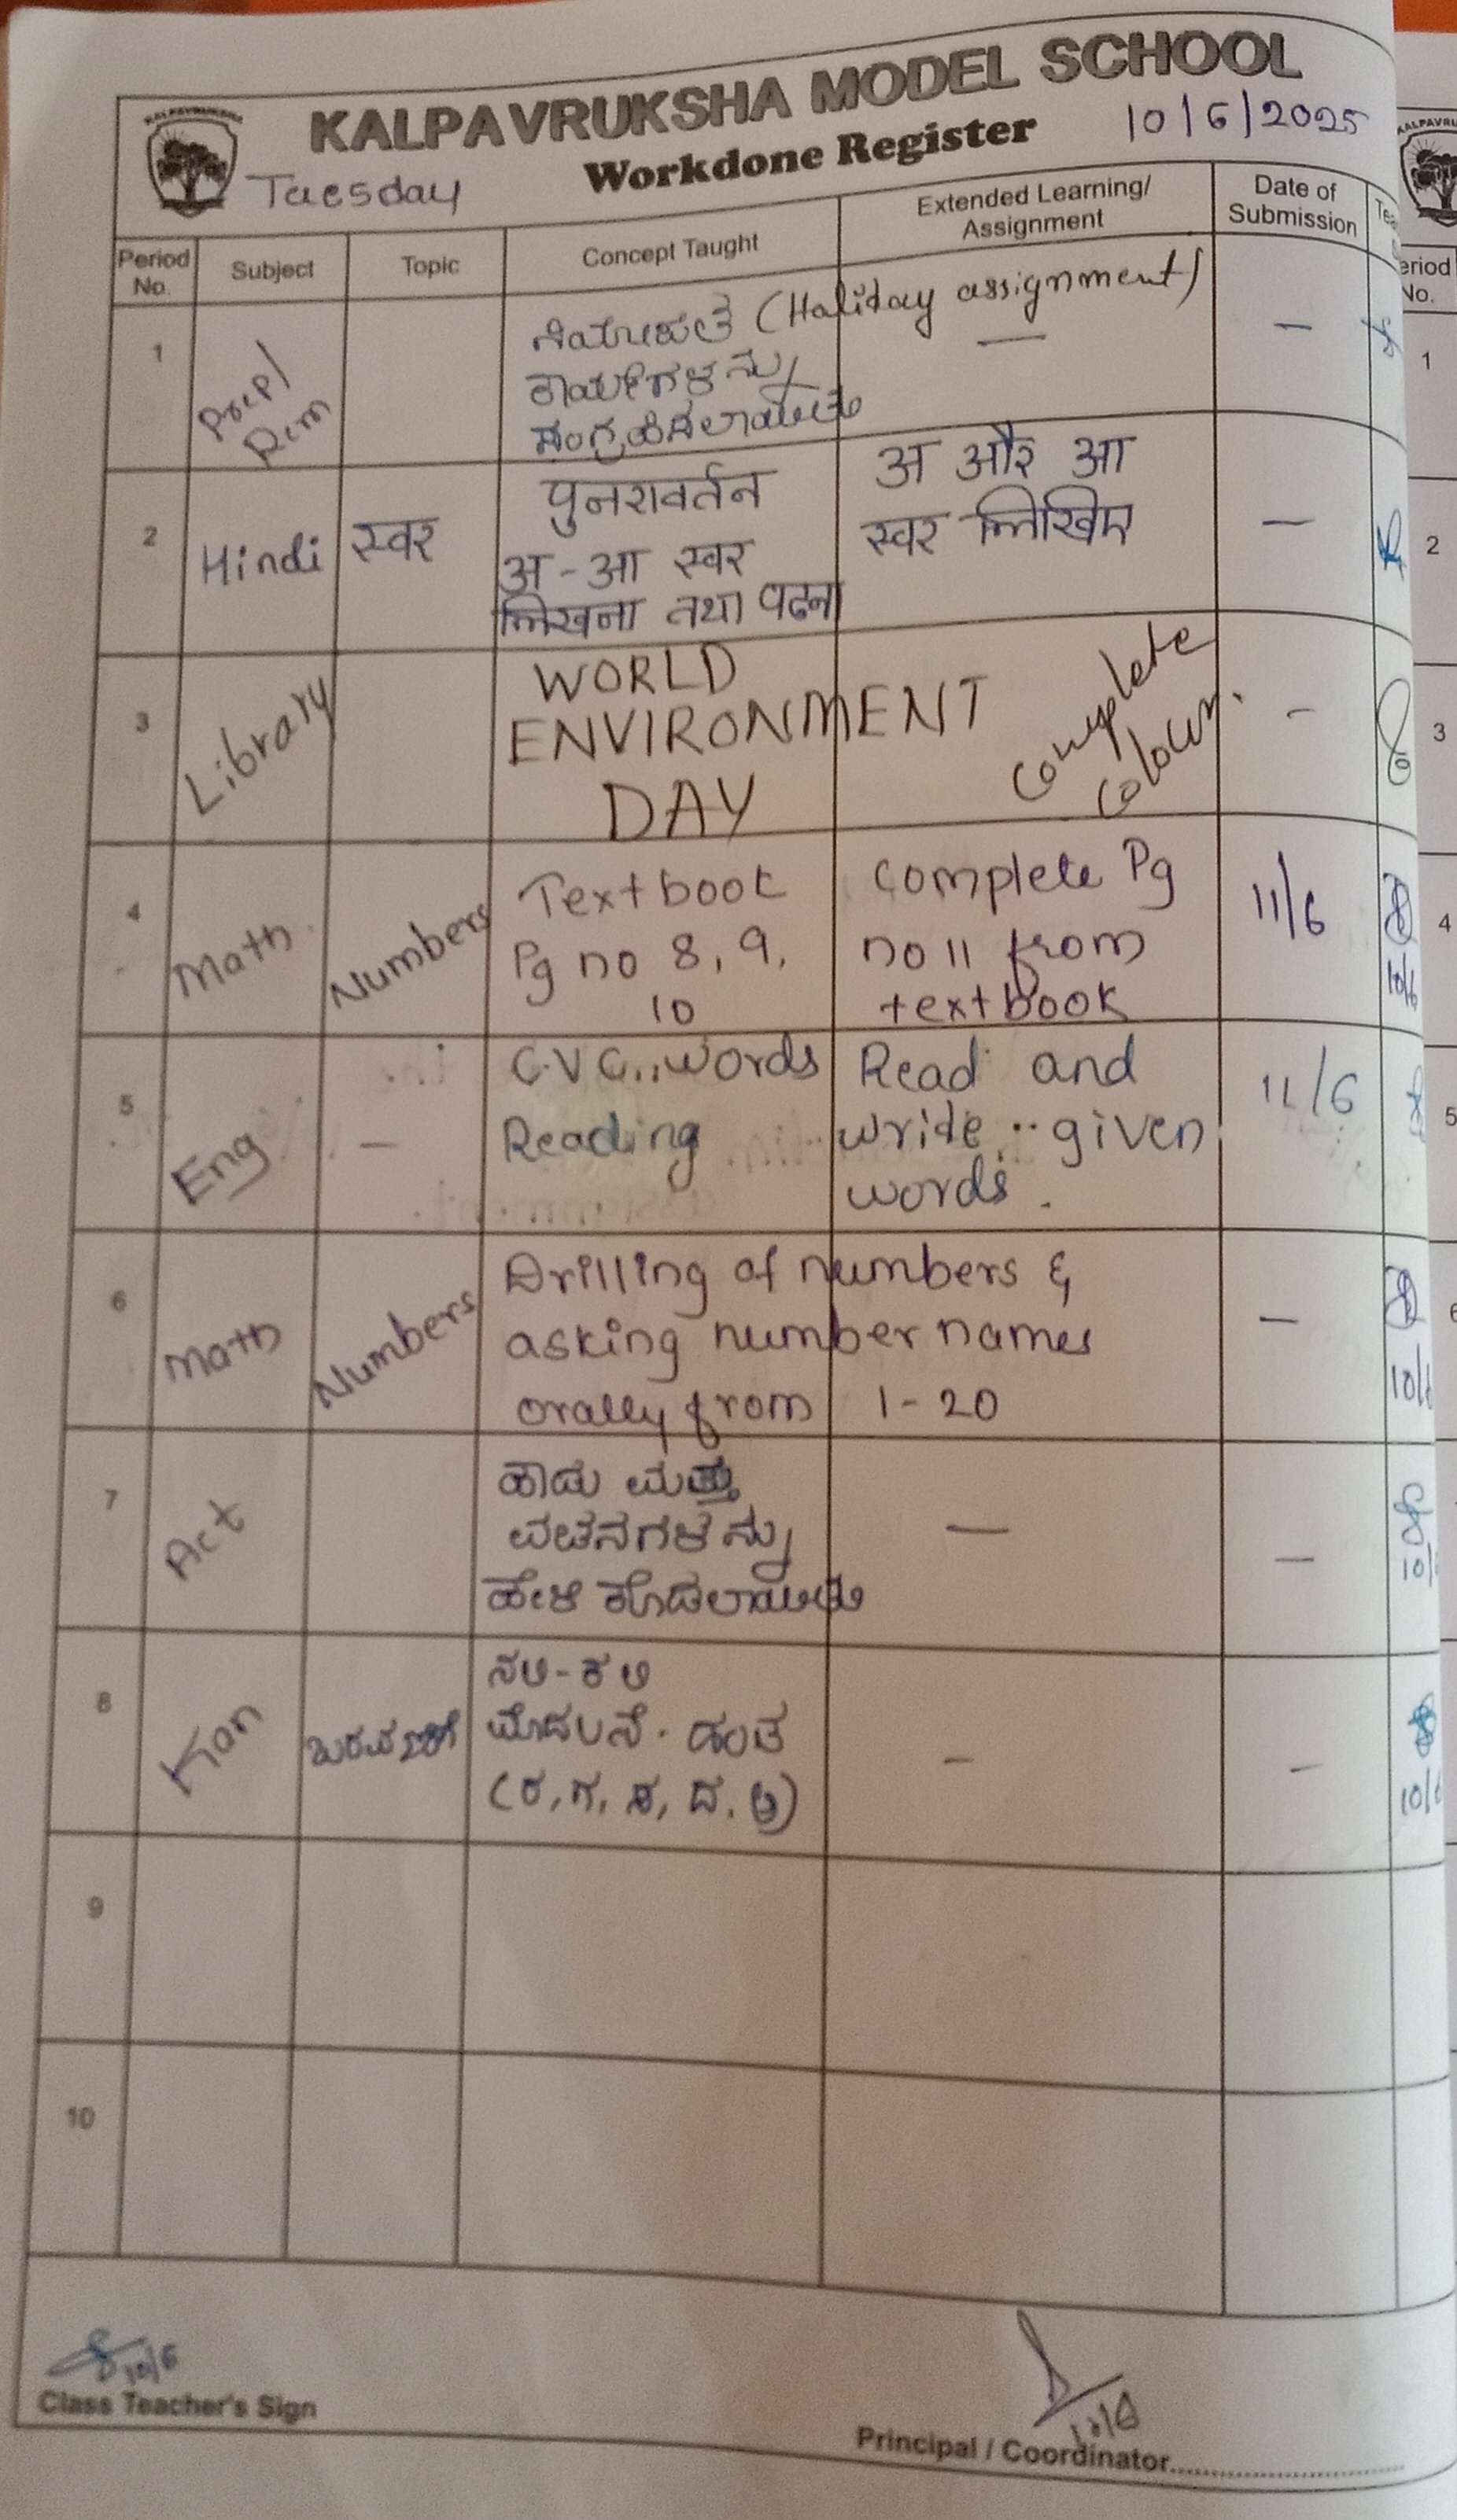 KALPAVRUKSHA MODEL SCHOOL
Workdone Register
10/6/2025
Tuesday
Period No.
Subject
Topic
Concept Taught
Extended Learning/
Assignment
Date of
Submission
1
Prep/
Rem
(Haliday assignment)
ಕಾರ್ಯಗಳನ್ನು
ಸಂಗ್ರಹಿಸಲಾಯಿತು
—
—
2
Hindi
स्वर
पुनरावर्तन
अ - आ स्वर
लिखना तथा पढना
अ और आ
स्वर लिखिए
—
3
Library
WORLD
ENVIRONMENT
DAY
complete
colour.
-
4
Math
Numbers
Textbook
Pg no 8, 9,
10
complete Pg
no 11 from
textbook
11/6
10/6
5
Eng
—
C.V.C.. words
Reading
Read and
write.. given
words.
11/6
6
Math
Numbers
Drilling of numbers &
asking number names
orally from 1-20
—
7
Act
ಹಾಡು ಮತ್ತು
ವಚನಗಳನ್ನು
ಹೇಳಿ ಕೊಡಲಾಯಿತು
—
—
8
Kan
ನಲಿ-ಕಲಿ
ಮೊದಲನೆ. ಹಂತ
-
-
10/6
9
10
10/6
Class Teacher's Sign
10/6
Principal / Coordinator
Period No.
1
2
3
4
5